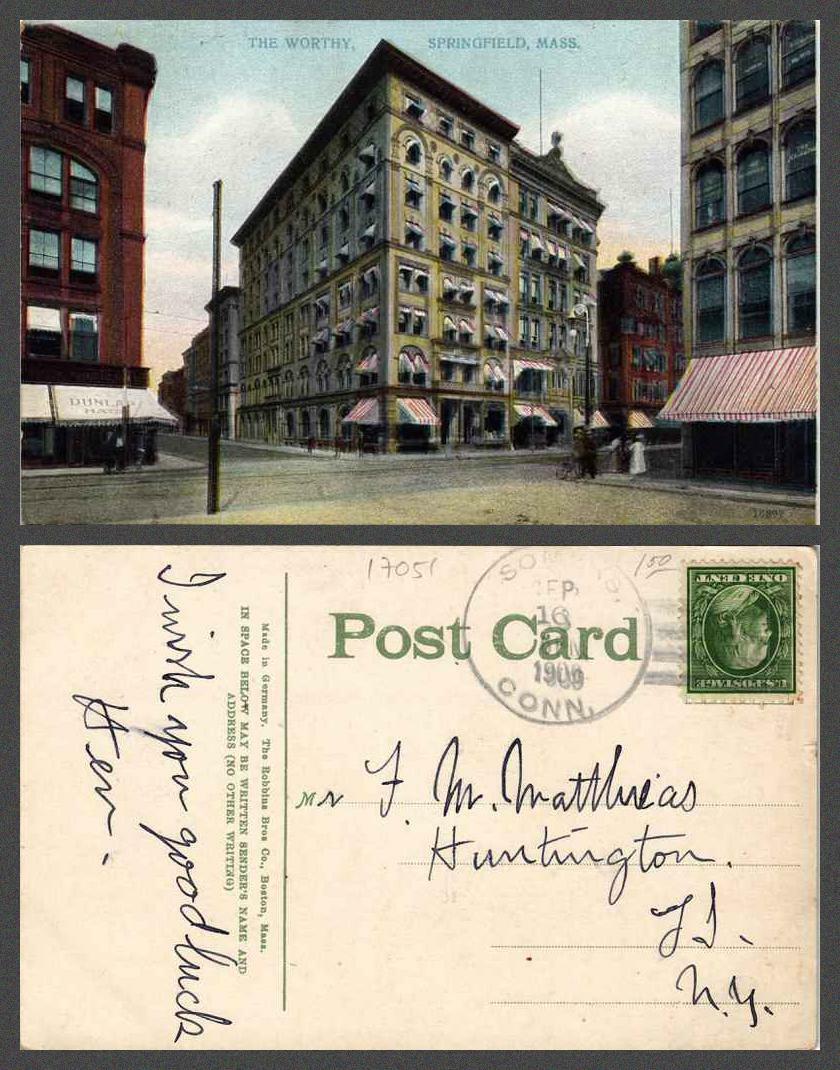 THE WORTHY, SPRINGFIELD, MASS.
DUNLAP
HATS
17051
1.50
Post Card
SEP
16
1909
CONN.
ONE CENT
U.S. POSTAGE
Made in Germany. The Robbins Bros Co., Boston, Mass.
IN SPACE BELOW MAY BE WRITTEN SENDER'S NAME AND
ADDRESS (NO OTHER WRITING)
I wish you good luck
Hen.
Mr F. M. Matthias
Huntington.
L I.
N.Y.